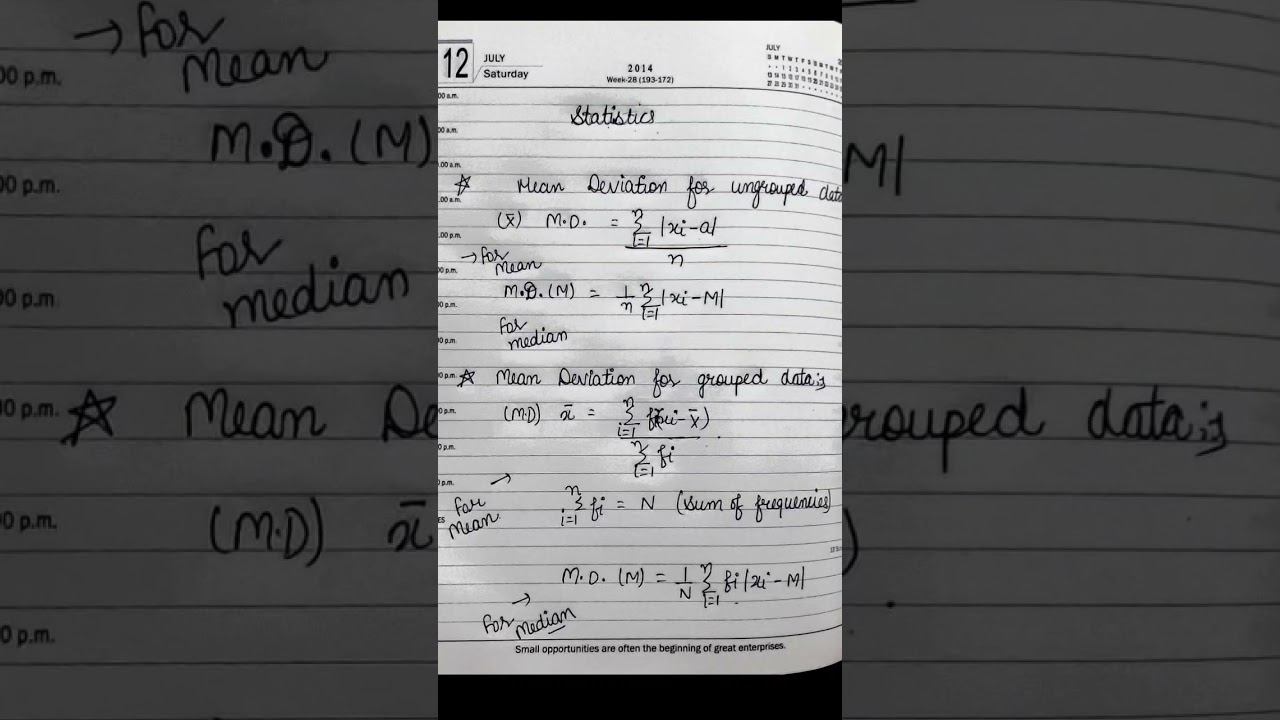 12 JULY
Saturday
2014
Week-28 (193-172)
JULY
S M T W T F S S M T W T F S
Statistics
☆ Mean Deviation for ungrouped data
(x̄) M.D. = ∑ⁿᵢ₌₁ |xi - a| / n
→ for mean
M.D. (M) = 1/n ∑ⁿᵢ₌₁ |xi - M|
for median
☆ Mean Deviation for grouped data :-
(M.D) x̄ = ∑ⁿᵢ₌₁ f(xi - x̄) / ∑ⁿᵢ₌₁ fi
for mean →
∑ⁿᵢ₌₁ fi = N (sum of frequencies)
M.D. (M) = 1/N ∑ⁿᵢ₌₁ fi |xi - M|
for median →
Small opportunities are often the beginning of great enterprises.